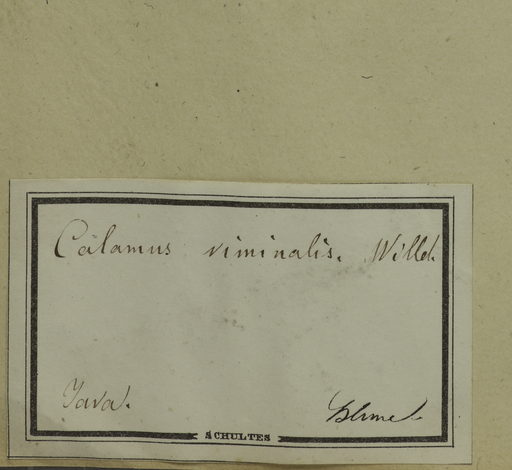 Calamus viminalis. Willd.
Java.
Blume.
SCHULTES